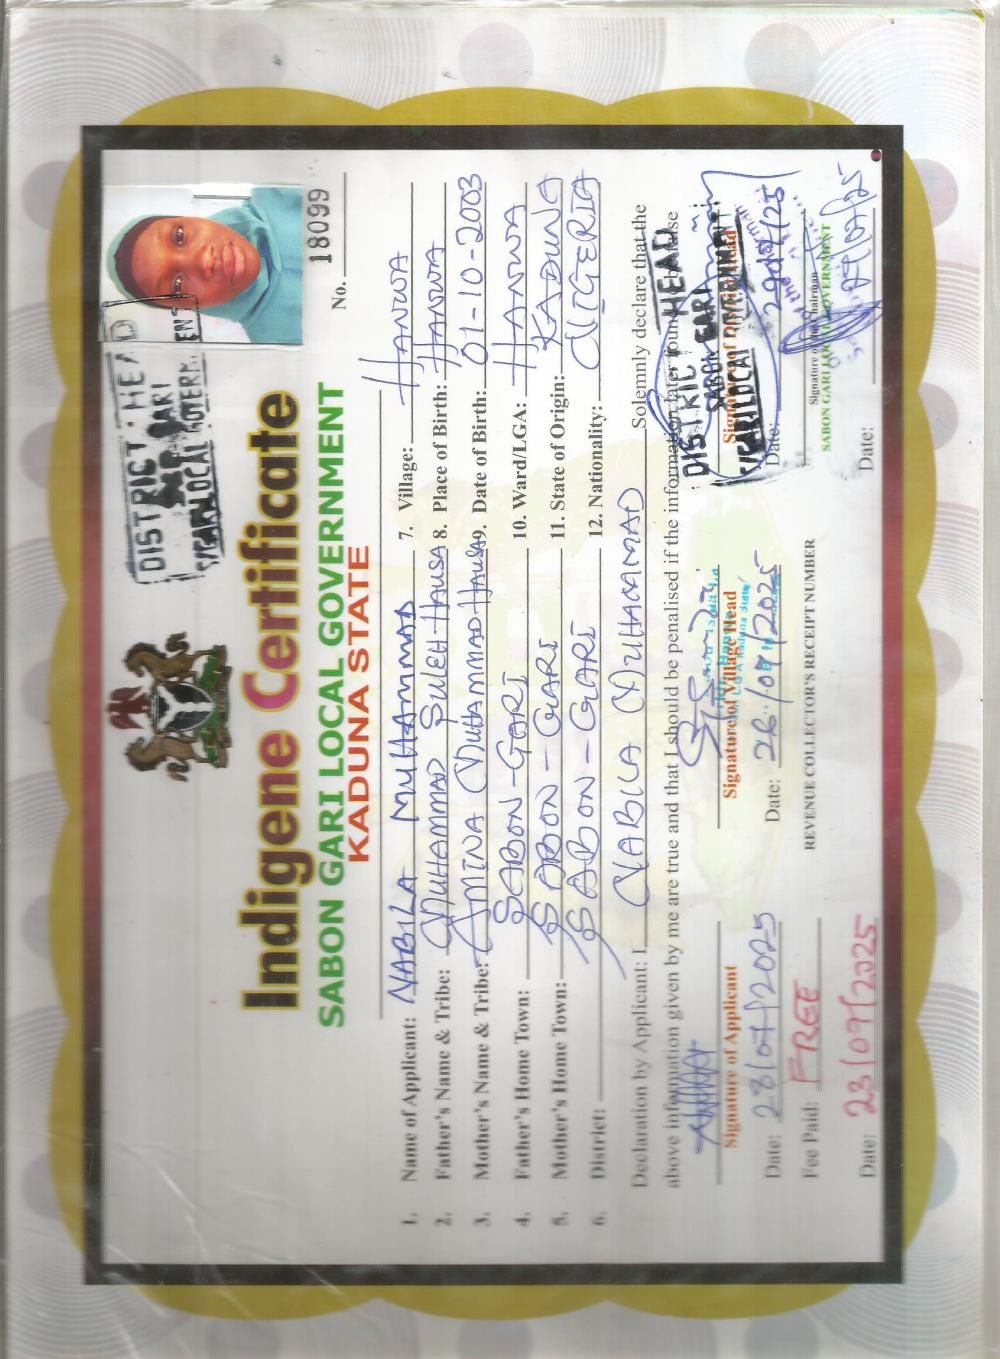 DISTRICT HEAD
SABON GARI
S/GARI LOCAL GOVERNMENT
No. 18099
Indigene Certificate
SABON GARI LOCAL GOVERNMENT
KADUNA STATE
1. Name of Applicant: NABILA MUHAMMAD
2. Father's Name & Tribe: MUHAMMAD SULEH HAUSA
3. Mother's Name & Tribe: AMINA MUHAMMAD HAUSA
4. Father's Home Town: SABON-GARI
5. Mother's Home Town: SABON-GARI
6. District: SABON-GARI
7. Village: HANWA
8. Place of Birth: HANWA
9. Date of Birth: 01-10-2003
10. Ward/LGA: HANWA
11. State of Origin: KADUNA
12. Nationality: NIGERIA
Declaration by Applicant: I NABILA MUHAMMAD Solemnly declare that the
above information given by me are true and that I should be penalised if the information later found false
Signature of Applicant
Date: 28/07/2025
Signature of Village Head
Date: 26/07/2025
DISTRICT HEAD
SABON GARI
S/GARI LOCAL GOVERNMENT
Signature of District Head
Date:
Fee Paid: FREE
Date: 23/09/2025
REVENUE COLLECTOR'S RECEIPT NUMBER
Signature of the Chairman
SABON GARI LOCAL GOVERNMENT
Date: